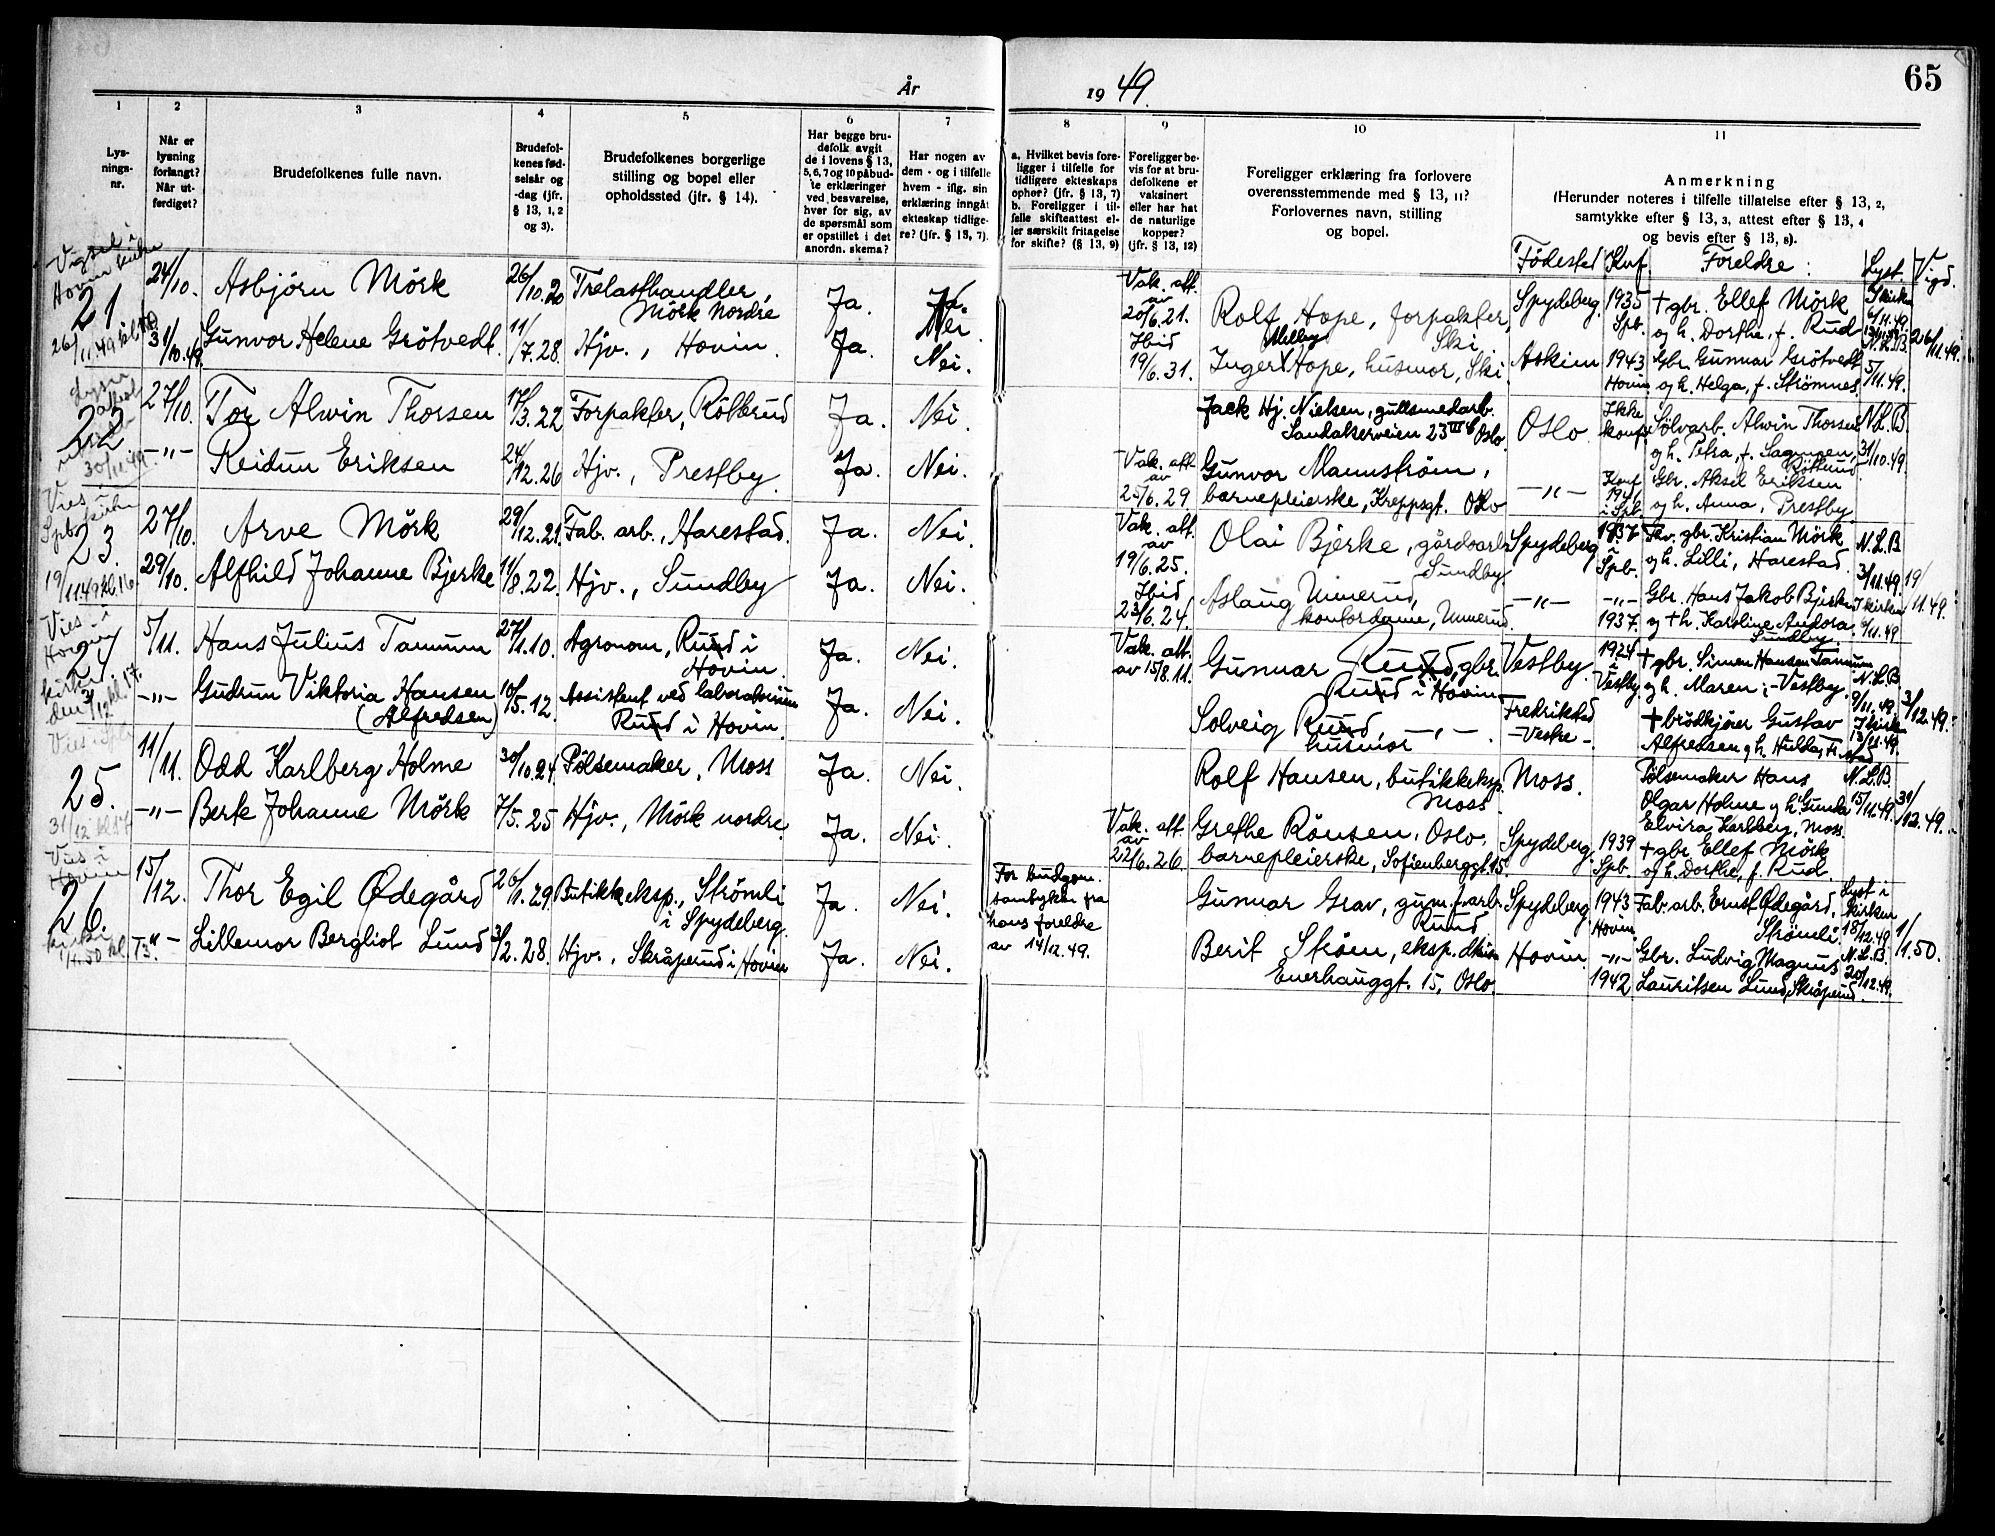 65
År
19 49.
1
2
3
4
5
6
7
8
9
10
11
Lys-
nings-
nr.
Når er
lysning
forlangt?
Når ut-
ferdiget?
Brudefolkenes fulle navn.
Brudefol-
kenes fød-
selsår og
-dag (jfr.
§ 13, 1, 2
og 3).
Brudefolkenes borgerlige
stilling og bopel eller
opholdssted (jfr. § 14).
Har begge bru-
defolk avgit
de i lovens § 13,
5, 6, 7 og 10 påbud-
te erklæringer
ved besvarelse,
hver for sig, av
de spørsmål som
er opstillet i det
anordn. skema?
Har nogen av
dem - og i tilfelle
hvem - iflg. sin
erklæring inngått
ekteskap tidlige-
re? (jfr. § 13, 7).
a. Hvilket bevis fore-
ligger i tilfelle for
tidligere ekteskaps
ophør? (jfr. § 13, 7)
b. Foreligger i til-
felle skifteattest el-
ler særskilt fritagelse
for skifte? (§ 13, 9)
Foreligger be-
vis for at bru-
defolkene er
vaksinert
eller har hat
de naturlige
kopper?
(jfr. § 13, 12)
Foreligger erklæring fra forlovere
overensstemmende med § 13, 11?
Forlovernes navn, stilling
og bopel.
Anmerkning
(Herunder noteres i tilfelle tillatelse efter § 13, 2,
samtykke efter § 13, 3, attest efter § 13, 4
og bevis efter § 13, 8).
Fødested Knf. Foreldre: Lyst Vigd.
Vigsel i
Hovin kirke
21
26/11.49
24/10. Asbjörn Mörk 26/10.20 Trelasthandler, Mörk nordre Ja. Nei
Vak. att. av 20/6.21. Rolf Hope, forpakter, Ski Spydeberg 1935 Spb. † gbr. Ellef Mörk og h. Dorthe, f. Rud I kirken 6/11.49
31/10.49. Gunvor Helene Grötvedt 11/7.28. Hjv., Hovin. Ja. Nei.
Ibid 19/6.31. Inger Melby Hope, husmor, Ski Askim 1943 Hovin Gbr. Gunnar Grötvedt og h. Helga, f. Strömnes. N.L.B. 5/11.49. 26/11.49.
22
30/11.49
27/10. Tor Alwin Thorsen 17/3.22 Forpakter, Rötterud Ja. Nei.
Jack Hj. Nielsen, gullsmedarb. Sandakerveien 23 Oslo Oslo Ikke konf. Sölvarb. Alwin Thorsen og h. Petra, f. N.L.B 31/10.49.
-"- Reidun Eriksen 24/12.26 Hjv., Prestby. Ja. Nei.
Vak. att. av 25/6.29 Gunvor Mannström, barnepleierske, Kreppsgt. Oslo -"- Konf 1941 i Spb. Gbr. Aksel Eriksen og h. Anna, Prestby.
Vies i
Spb. kirke
23.
19/11.49 kl. 16
27/10. Arve Mörk 29/12.21. Fab. arb., Harestad. Ja. Nei.
Vak. att. av 19/6.25. Olai Bjerke, gårdsarb. Sundby Spydeberg 1937 Spb. Fhv. gbr. Kristian Mörk og h. Lilli, Harestad. N.L.B 3/11.49.
29/10. Alfhild Johanne Bjerke 11/8.22. Hjv., Sundby Ja. Nei.
Ibid 23/6.24. Aslaug Unnerud, kontordame, Unnerud. -"- -"- 1937. Gbr. Hans Jakob Bjerke og † h. Karoline Andora, Sundby I kirken 6/11.49 19/11.49.
Vies i
24
kirke
den 3/12 kl. 17.
5/11. Hans Julius Tamum 27/1.10. Agronom, Rund i Hovin. Ja. Nei.
Vak. att. av 15/8.11. Gunnar Rund, gbr. Rund i Hovin Vestby. 1924 i Vestby † gbr. Simen Hansen Tamum og h. Maren, -Vestby. N.L.B 9/11.49.
-"- Gudrun Viktoria Hansen (Alfredsen) 10/5.12. Assistent ved laboratorium Rund i Hovin. Ja. Nei.
Solveig Rund, husmor -"-. Fredrikstad -Vestre- † brödkjörer Gustav Alfredsen og h. Hulda, Fr.stad I kirken 13/11.49. 3/12.49.
25.
31/12
11/11. Odd Karlberg Holme 30/10.24. Pölsemaker, Moss Ja. Nei.
Rolf Hansen, butikkeksp. Moss Moss. Pölsemaker Hans Olgar Holme og h. Gunda Elvira Karlberg, Moss. N.L.B 15/11.49. 31/12.49.
-"- Berte Johanne Mörk 7/5.25 Hjv., Mörk nordre. Ja. Nei.
Vak. att. av 22/6.26. Grethe Rönsen, Oslo. barnepleierske, Sofienberggt. 15. Spydeberg. 1939 Spb. † gbr. Ellef Mörk og h. Dorthe, f. Rud.
Vies i
Hovin
26.
kirke
1/1.50 kl.
15/12. Thor Egil Ødegård 26/1.29. Butikkeksp., Strömli i Spydeberg. Ja. Nei.
For brudgom. samtykke fra hans foreldre av 14/12.49.
Gunnar Grav, gum.f.arb. Rund Spydeberg 1943 Hovin Fab. arb. Ernst Ødegård, Strömli. Lyst i kirken 18/12.49
-"- Lillemor Bergliot Lund 3/2.28. Hjv., Skråperud i Hovin Ja. Nei.
Berit Ström, eksp. Enerhauggt. 15, Oslo. Hovin -"- 1942. Gbr. Ludvig Magnus Lauritsen Lund, Skråperud. N.L.B. 20/12.49. 1/1.50.